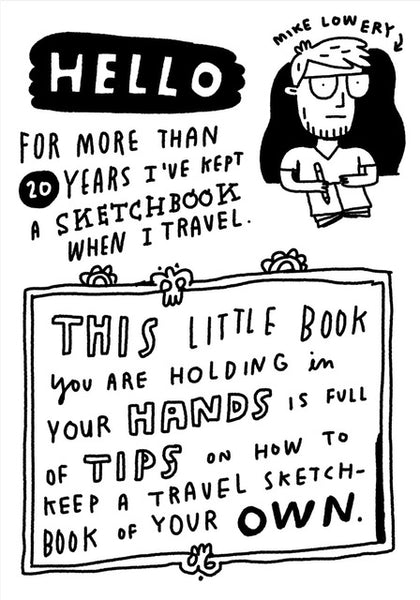 MIKE LOWERY
HELLO
FOR MORE THAN
20 YEARS I'VE KEPT
A SKETCHBOOK
WHEN I TRAVEL.
THIS LITTLE BOOK
YOU ARE HOLDING in
YOUR HANDS IS FULL
OF TIPS ON HOW TO
KEEP A TRAVEL SKETCH-
BOOK OF YOUR OWN.